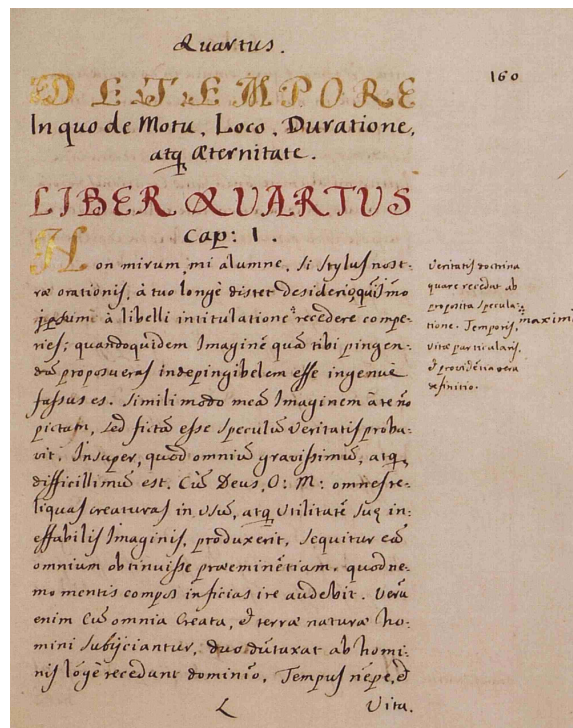 Quartus.
160
DE TEMPORE
In quo de Motu, Loco, Duratione,
atq Æternitate.
LIBER QUARTUS
Cap: I.
Non mirum, mi alumne, si stylus nost-
ræ orationis, à tuo longè distet desiderio,
à libelli intitulatione recedere compe-
ries; quandoquidem Imaginē quā tibi pingen-
dā proposueras indepingibelem esse ingenuè
fassus es. Simili modo meā Imaginem à te nō
pictam, sed fictā esse speculū veritatis proba-
vit. Insuper, quod omniū gravissimū, atq
difficillimū est. Cū Deus, O: M: omnes re-
liquas creaturas in usū, atq utilitatē suę in-
effabilis Imaginis, produxerit, sequitur eā
omnium obtinuisse præeminētiam. quod ne-
mo mentis compos inficias ire audebit. Verū
enim Cū omnia Creata, et terræ naturæ ho-
mini subijciantur, duo dūtaxat ab homi-
nis lōgè recedunt dominio, Tempus nēpe, et
L
Vita.
Veritatis doctrina
quare recedat ab
proposita specula-
tione. Temporis, maximi
vitæ particularis,
et providētia vera
definitio.